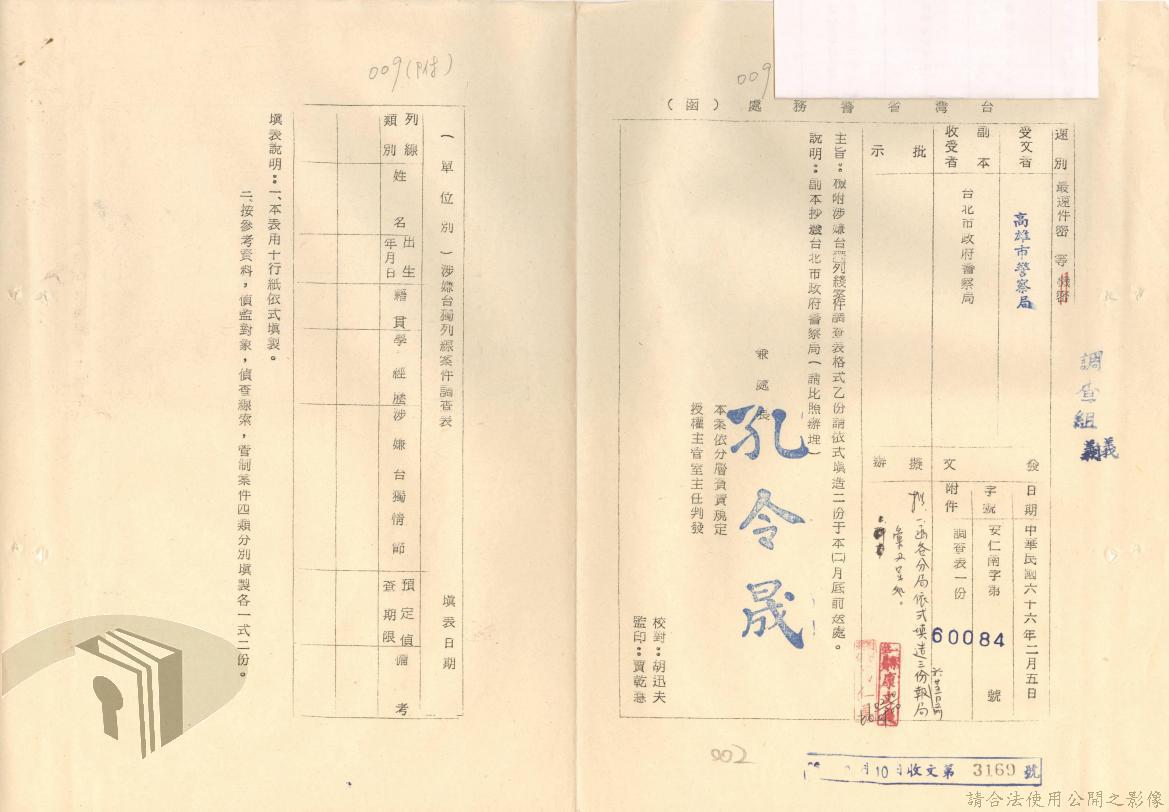 009
台灣省警務處（函）
速別 最速件 密等 機密
受文者 高雄市警察局
副本收受者 台北市政府警察局
批示
發文
日期 中華民國六十六年二月五日
字號 安仁南字第 60084 號
附件 調查表一份
擬辦
主旨：檢附涉嫌台獨列線案件調查表格式乙份請依式填造二份于本(二)月底前送處。
說明：副本抄送台北市政府警察局（請比照辦理）
兼處長 孔令晟
本案依分層負責規定
授權主官室主任判發
校對：胡迅夫
監印：賈乾
調查組
函各分局依式填造三份報局
月10日收文第 3169 號
002
009(附)
（單位別）涉嫌台獨列線案件調查表 填表日期
列線類別
姓名
出生年月日
籍貫
學經歷
涉嫌台獨情節
預定偵查期限
備考
填表說明：一、本表用十行紙依式填製。
二、按參考資料，偵監對象，偵查線索，管制案件四類分別填製各一式二份。
請合法使用公開之影像